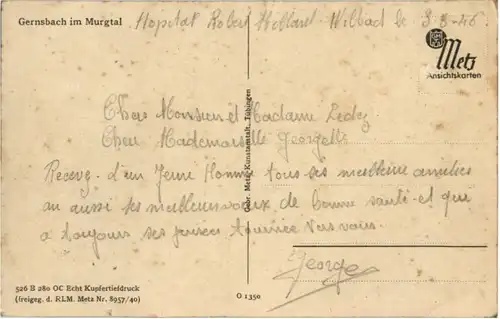 Gernsbach im Murgtal
Hopital Robert Wilbad le 3-3-46
Metz
Ansichtskarten
Chers Monsieur et Madame Ledez
Chere Mademaiselle Georgette
Recevez d'un Jeune Homme tous ses meilleure amities
au aussi ses meilleur vœux de bonne santé et qui
a toujours ses pensées tournée vers vous.
George
Gebr. Metz, Kunstanstalt, Tübingen
526 B 280 OC Echt Kupfertiefdruck
(freigeg. d. RLM. Metz Nr. 8957/40)
O 1350